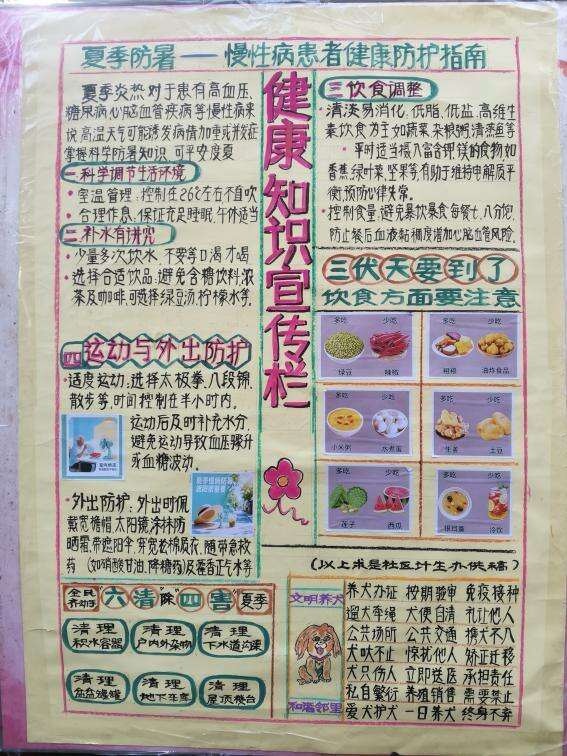 夏季防暑——慢性病患者健康防护指南
健康知识宣传栏
夏季炎热对于患有高血压、
糖尿病心脑血管疾病等慢性病来
说高温天气可能诱发病情加重或并发症
掌握科学防暑知识 可平安度夏
一科学调节生活环境
·室温管理:控制在26℃左右不直吹
·合理作息、保证充足睡眠,午休适当
二.补水有讲究
·少量多次饮水 不要等口渴才喝
·选择合适饮品:避免含糖饮料.浓
茶及咖啡.可选择绿豆汤,柠檬水等.
四运动与外出防护
·适度运动.选择太极拳、八段锦、
散步等,时间控制在半小时内.
运动后及时补充水分.
避免运动导致血压骤升
或血糖波动.
·外出防护:外出时佩
戴宽檐帽.太阳镜,涂抹防
晒霜.带遮阳伞,穿宽松棉质衣,随带急救
药(如硝酸甘油,降糖药)及藿香正气水等
三饮食调整
·清淡易消化,低脂、低盐、高维生
素饮食为主如蔬菜杂粮粥清蒸鱼等
·平时适当摄入富含钾镁的食物如
香蕉绿叶菜坚果等有助于维持电解质平
衡,预防心律失常.
·控制食量:避免暴饮暴食每餐七、八分饱,
防止餐后血液粘稠度增加心脑血管风险.
三伏天要到了
饮食方面要注意
多吃 少吃
绿豆 辣椒
多吃 少吃
粗粮 油炸食品
多吃 少吃
小米粥 水煮蛋
多吃 少吃
生姜 土豆
多吃 少吃
莲子 西瓜
多吃 少吃
冷饮
(以上求是社区计生办供稿)
全民齐动手
"六清除四害"夏季
清理积水容器
清理户内外杂物
清理下水道沟渠
清理盆盆罐罐
清理地下车库
清理屋顶楼台
文明养犬
和谐邻里
养犬办证 按期验审 免疫接种
遛犬牵绳 犬便自清 礼让他人
公共场所 公共交通 携犬不入
犬吠不止 惊扰他人 矫正迁移
犬只伤人 立即送医 承担责任
私自繁衍 养殖销售 需要禁止
爱犬护犬 一日养犬 终身不弃